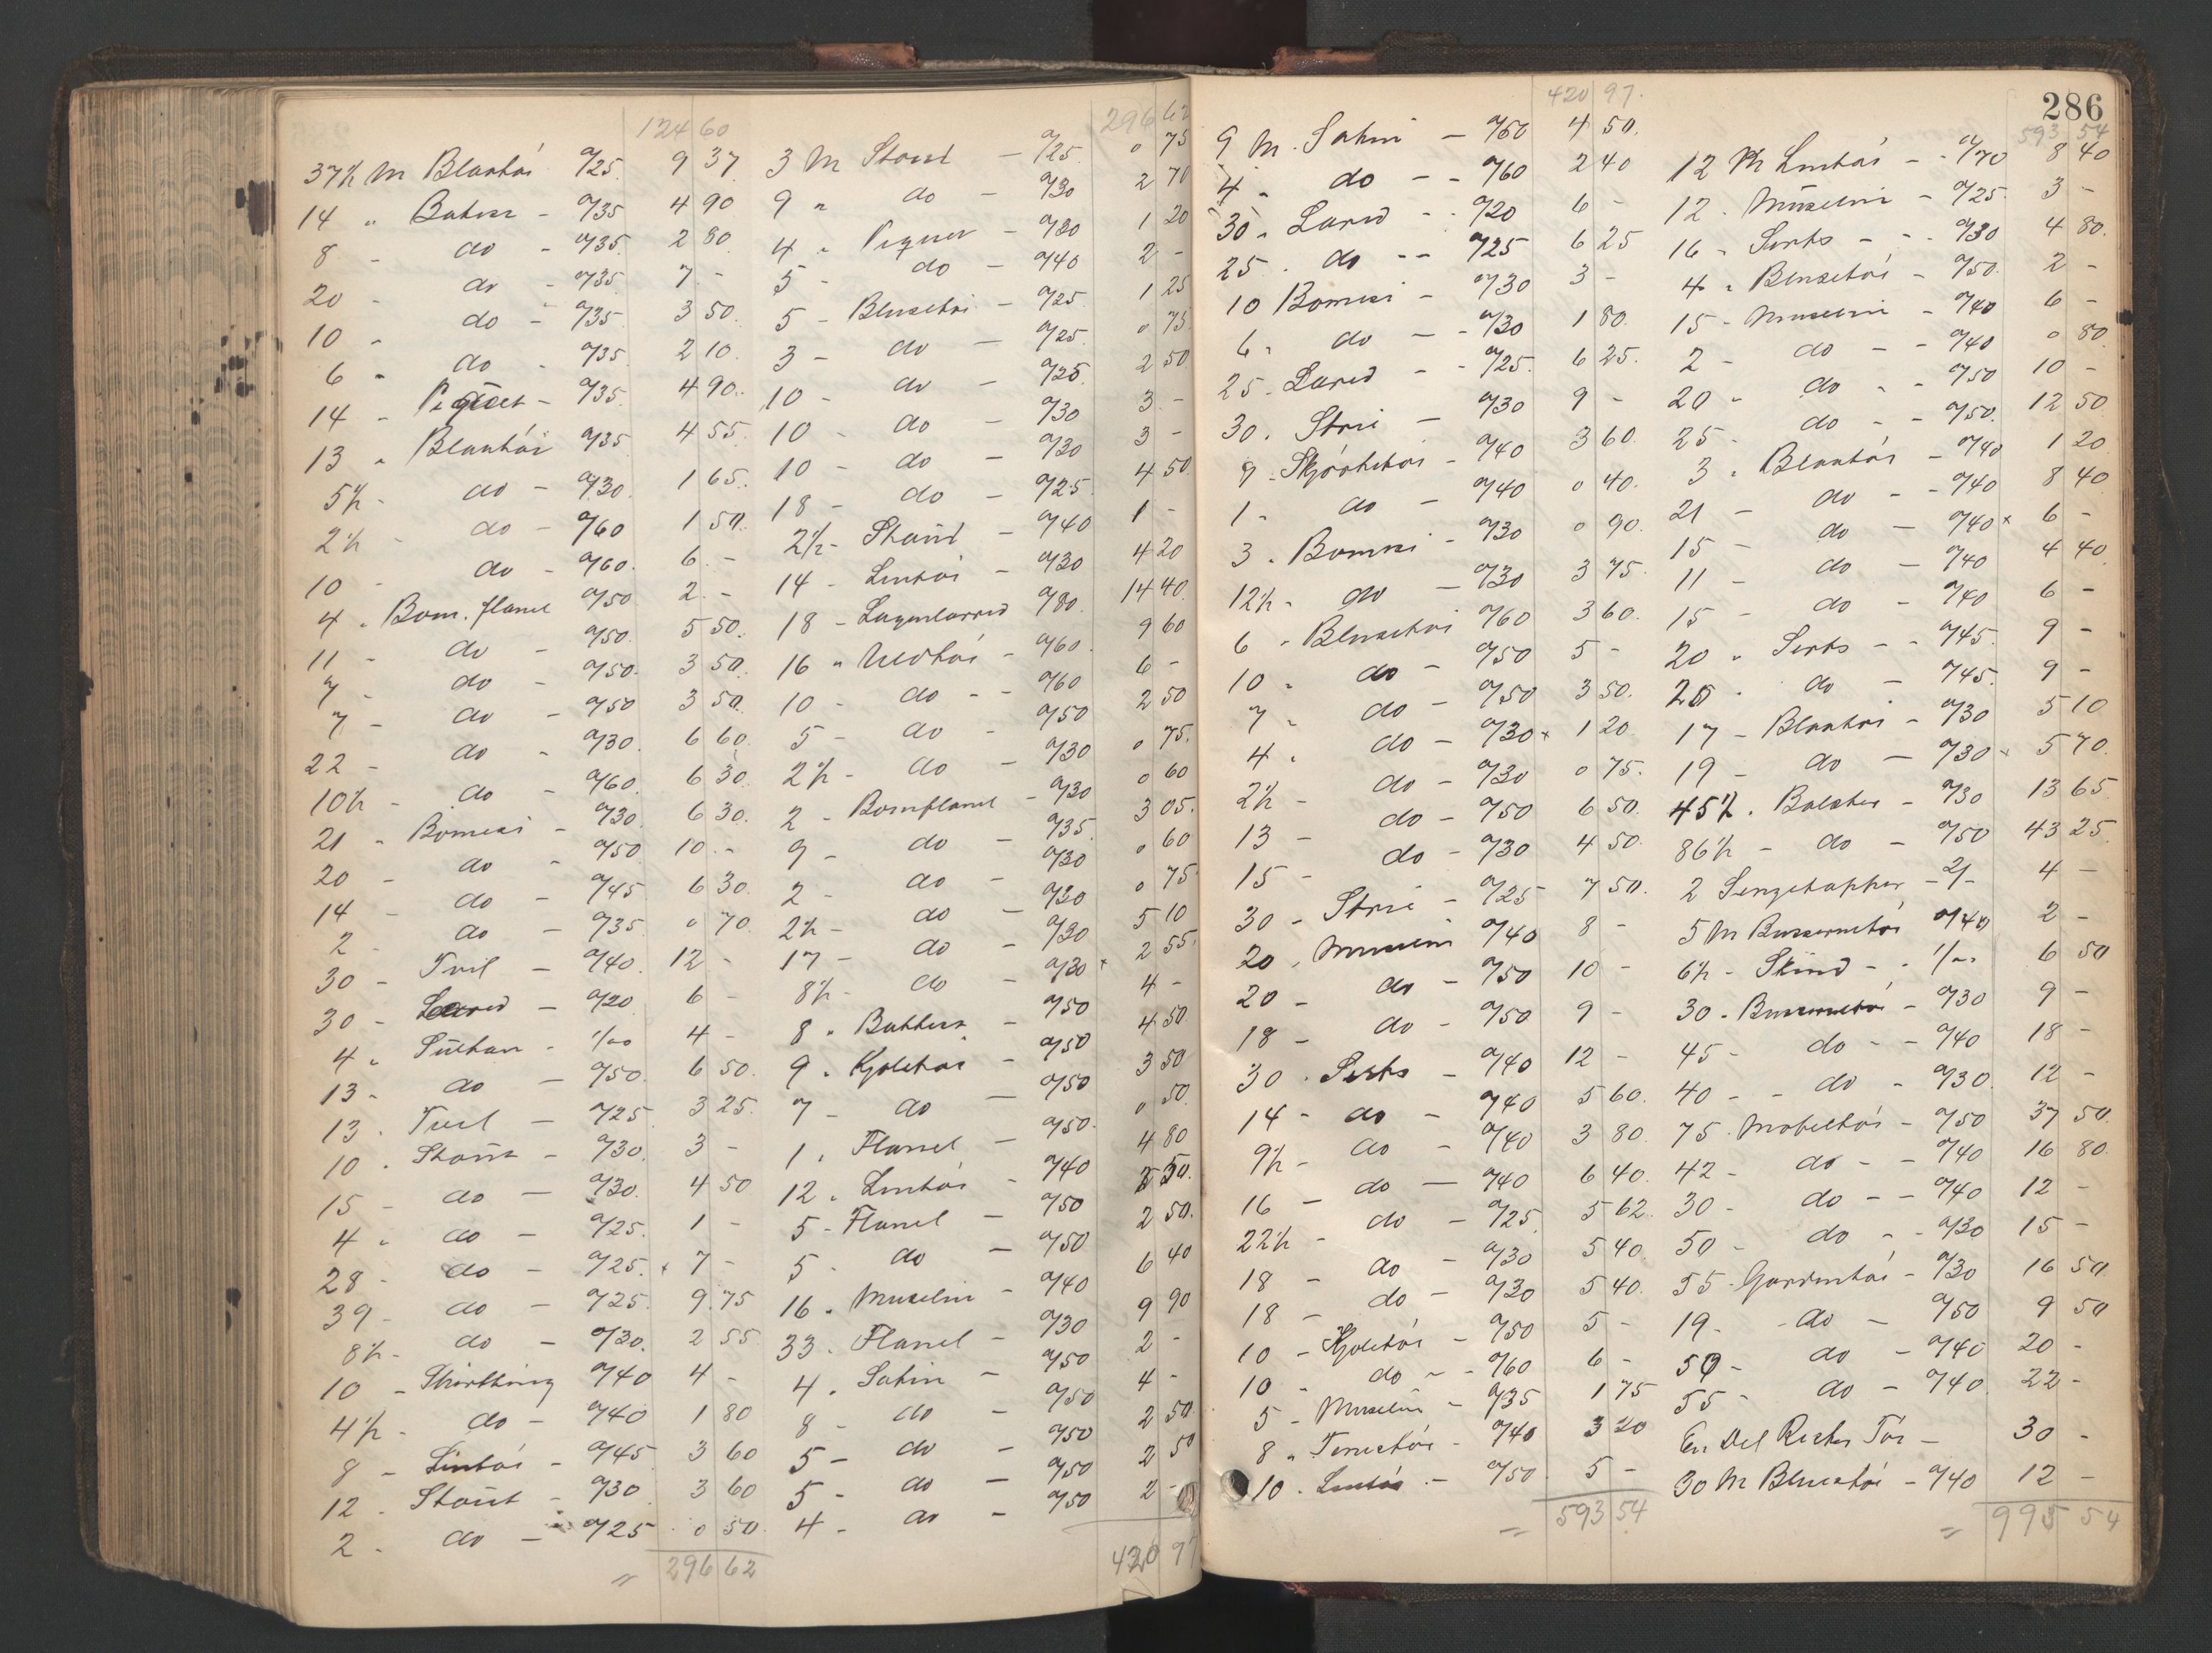 124 60
37½ M Blaatöi º/25 9 37
14 " Batien - º/35 4 90
8 - do - º/35 2 80
20 - do - º/35 7 -
10 " do - º/35 3 50
6 " do - º/35 2 10
14 - Piquet - º/35 4 90
13 " Blaatöi º/35 4 55
5½ - do - º/30 1 65
2½ - do - º/60 1 50
10 - do - º/60 6 -
4 " Bom. flanel º/50 2 -
11 - do - º/50 5 50
7 - do - º/50 3 50
7 - do - º/50 3 50
22 - do - º/30 6 60
10½ - do - º/60 6 30
21 " Bomesi - º/30 6 30
20 - do - º/50 10 -
14 - do - º/45 6 30
2 - do - º/35 0 70
30 - Tvil - º/40 12 -
30 - Lærred - º/20 6 -
4 " Sultan - 1/00 4 -
13 - do - º/50 6 50
13 - Tvil - º/25 3 25
10 - Stout - º/30 3 -
15 - do - º/30 4 50
4 " do - º/25 1 -
28 - do - º/25 7 -
39 - do - º/25 9 75
8½ - do - º/30 2 55
10 - Shirthing º/40 4 -
4½ - do - º/40 1 80
8 - Lintöi - º/45 3 60
12 - Stout - º/30 3 60
2 - do - º/25 0 50
= 296 62
296 62
3 M Stout - º/25 0 75
9 " do - º/30 2 70
4 " Piquet - º/30 1 20
5 - do - º/40 2 -
5 - Blusetöi - º/25 1 25
3 - do - º/25 0 75
10 - do - º/25 2 50
10 - do - º/30 3 -
10 - do - º/30 3 -
18 - do - º/25 4 50
2½ - Stout - º/40 1 -
14 - Lintöi - º/30 4 20
18 - Lagenlærred º/80 14 40
16 " Uldtöi - º/60 9 60
10 - do - - º/60 6 -
5 - do - º/50 2 50
2½ - do - º/30 0 75
2 - Bomflanel - º/30 0 60
9 - do - º/35 3 05
2 - do - º/30 0 60
2½ - do - º/30 0 75
17 - do - º/30 5 10
8½ - do - º/30 x 2 55
8 " - º/50 4 -
9 " Kjoletöi - º/50 4 50
7 - do - º/50 3 50
1 " Flanel - º/50 0 50
12 " Lintöi - º/40 4 80
5 - Flanel - º/50 2 50
5 - do - º/50 2 50
16 " Muselin - º/40 6 40
33 " Flanel - º/30 9 90
4 " Satin - º/50 2 -
8 - do - º/50 4 -
5 - do - º/50 2 50
5 - do - º/50 2 50
4 - do - º/50 2 -
420 97
420 97
9 M. Satin - º/50 4 50
4 " do - - º/60 2 40
30 " Lærred - - º/20 6 -
25 " do - - º/25 6 25
10 Bomesi - º/30 3 -
6 " do - - º/30 1 80
25 - Lærred - - º/25 6 25
30 " Strie - º/30 9 -
9 - Skjörtetöi - º/40 3 60
1 - do - º/40 0 40
3 " Bomesi - º/30 0 90
12½ - do - º/30 3 75
6 " Blusetöi º/60 3 60
10 " do - º/50 5 -
7 " do - º/50 3 50
4 " do - º/30 x 1 20
2½ - do - º/30 0 75
13 - do - º/50 6 50
15 - do - º/30 4 50
30 - Strie - º/25 7 50
20 " Muselin º/40 8 -
20 - do - º/50 10 -
18 - do - º/50 9 -
30 " Serts - º/40 12 -
14 - do - º/40 5 60
9½ - do - º/40 3 80
16 - do - º/40 6 40
22½ - do - º/25 5 62
18 - do - º/30 5 40
18 - do - º/30 5 40
10 - Kjoletöi - º/50 5 -
10 " do - - º/60 6 -
5 - Muselin - º/35 1 75
8 " Ternetöi - º/40 3 20
10 " Lintöi - º/50 5 -
= 593 54
286
593 54
12 M Lintöi - - º/70 8 40
12 " Muselin - º/25 3 -
16 " Serts - - º/30 4 80
4 " Blusetöi - º/50 2 -
15 - Muselin - º/40 6 -
2 - do - - º/40 0 80
20 " do - - º/50 10 -
25 - do - - º/50 12 50
3 " Blaatöi - º/40 1 20
21 - do - - º/40 8 40
15 - do - º/40 x 6 -
11 - do - º/40 4 40
15 - do - º/40 6 -
20 " Serts - - º/45 9 -
20 " do - º/45 9 -
17 - Blaatöi - º/30 5 10
19 - do - º/30 x 5 70
45½ " Bolster - º/30 13 65
86½ - do - º/50 43 25
2 Sengetæpper - 2/- 4 -
5 M Busseruntöi º/40 2 -
6½ - Skind - - 1/00 6 50
30 - Busseruntöi - º/30 9 -
45 - do - - º/40 18 -
40 - - do - º/30 12 -
75 - Mobeltöi - º/50 37 50
42 - do - - º/40 16 80
30 - do - - º/40 12 -
50 - do - - º/30 15 -
55 - Gardintöi - º/30 16 50
19 - - do - º/50 9 50
50 - do - º/40 20 -
55 - do - º/40 22 -
En Del Rester Töi - 30 -
30 M Blusetöi - º/40 12 -
= 995 54